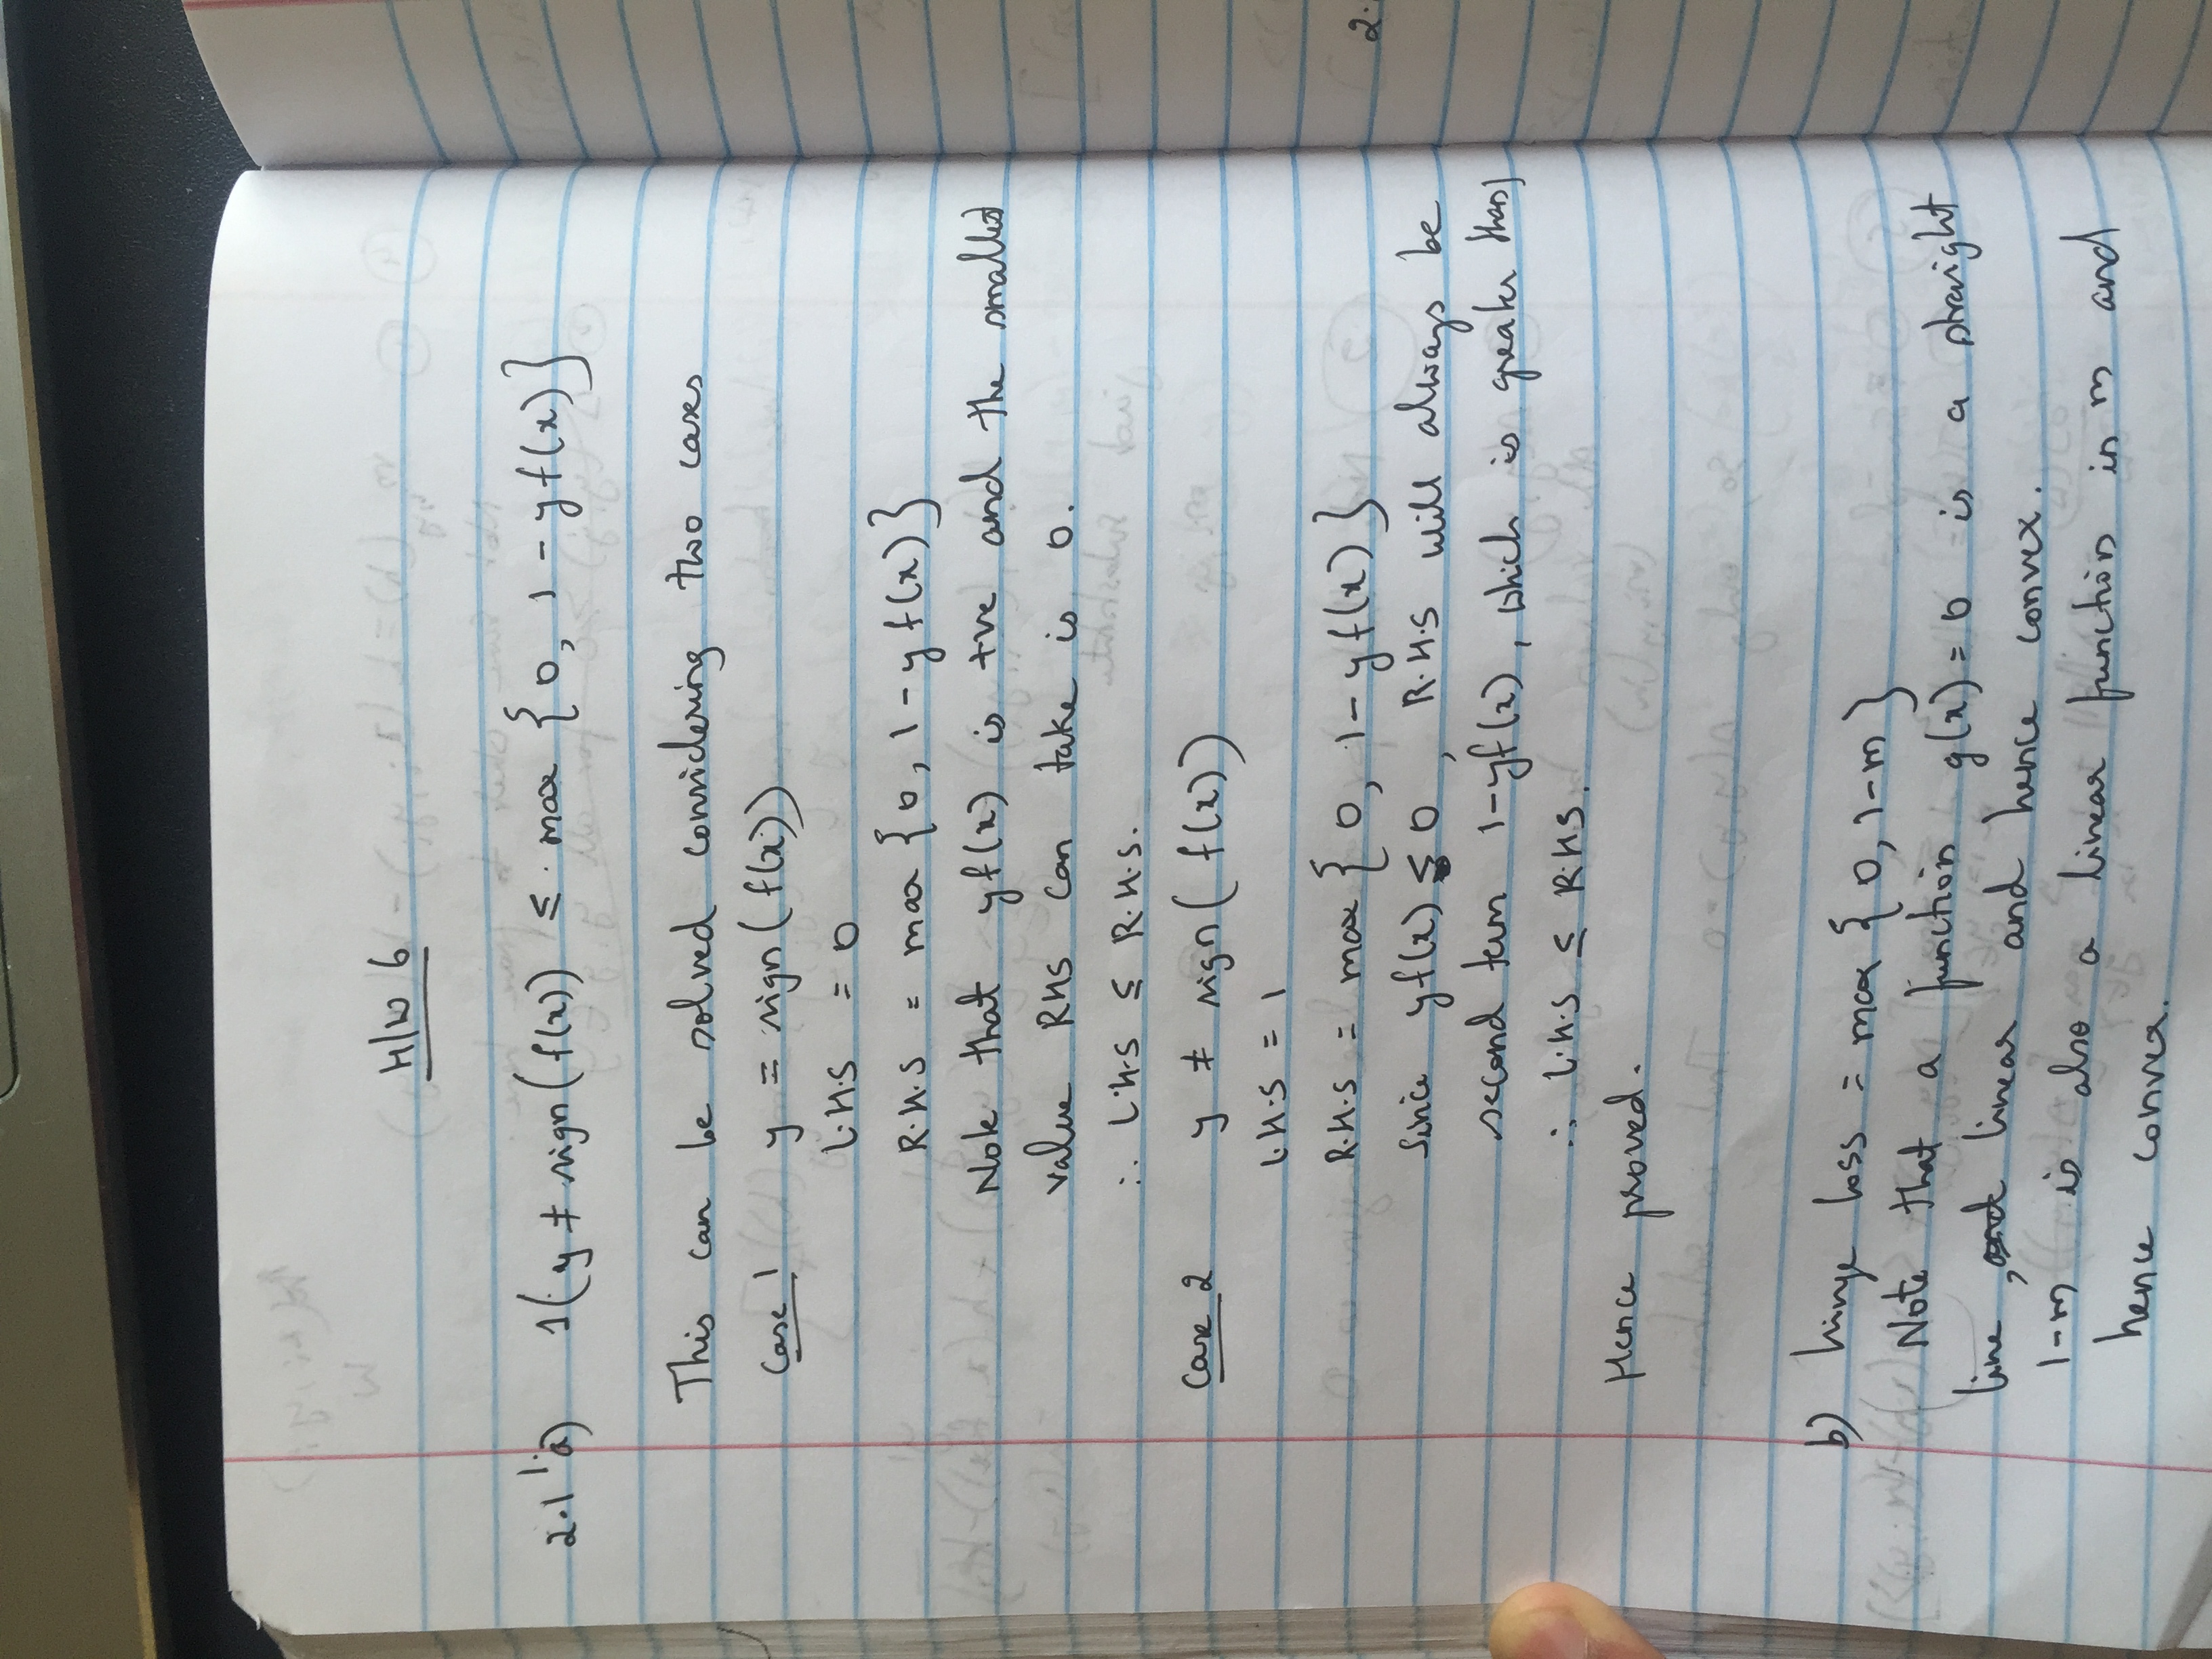 H/W 6
2.1 1.a) 1(y ≠ sign(f(x)) ≤ max {0, 1 - yf(x)}
This can be solved considering two cases
Case 1 y = sign(f(x))
L.H.S = 0
R.H.S = max {0, 1-yf(x)}
Note that yf(x) is +ve and the smallest
value RHS can take is 0.
∴ L.H.S ≤ R.H.S.
Case 2 y ≠ sign(f(x))
L.H.S = 1
R.H.S = max {0, 1-yf(x)}
Since yf(x) ≤ 0, R.H.S will always be
second term 1-yf(x), which is greater than 1
∴ L.H.S ≤ R.H.S.
Hence proved.
2.
b) hinge loss = max {0, 1-m}
Note that a function g(x)=0 is a straight
line, linear and hence convex.
1-m is also a linear function in m and
hence convex.